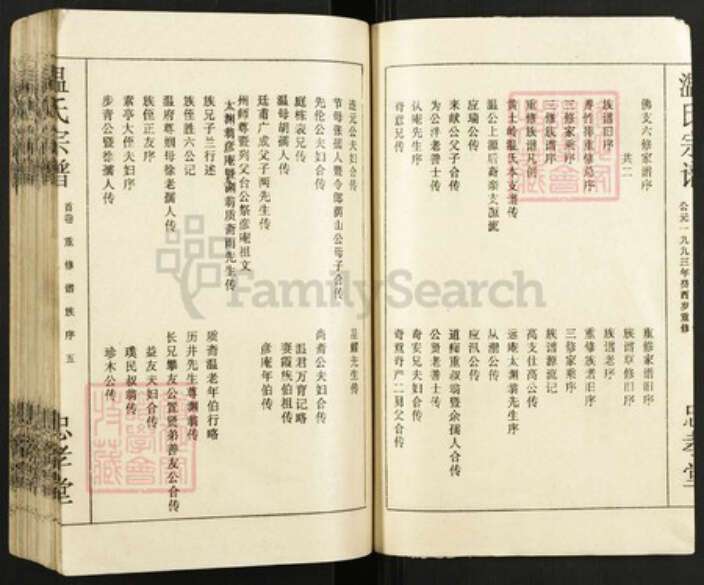 温氏宗谱
公元一九九三年癸酉岁重修
忠孝堂
佛支六修家谱序
重修家谱旧序
共二
族谱草修旧序
族谱旧序
族谱老序
重修族老旧序
三修家乘序
三修家乘序
三修族谱序
族谱源流记
重修族谱凡例
高支住高公传
黄土岭温氏本支谱传
远庵太渊翁先生序
温公上源后裔亲支源流
从潮公传
应瑞公传
应汛公传
来献公父子合传
道痴重叔翁暨余孺人合传
为公泮老善士传
公贤老善士传
认庵先生序
奇安兄夫妇合传
奇意兄传
连元公夫妇合传
显耀先生传
先伦公夫妇合传
尚斋公夫妇合传
庭栋袁兄传
温君万育记略
温母胡孺人传
廷甫广成父子两先生传
彦庵年伯传
太渊翁彦庵暨渊翁质斋两先生传
族兄子三行述
质斋温老年伯行略
族侄胜六公记
历井先生尊渊翁传
温府尊姻母徐老孺人传
长兄攀友公置暨弟善友公合传
族侄正友序
益友夫妇合传
素亭大侄夫妇序
璞民叔翁传
步青公暨徐孺人传
珍木公传
温氏宗谱
首卷 重修谱族序 五
忠孝堂
FamilySearch